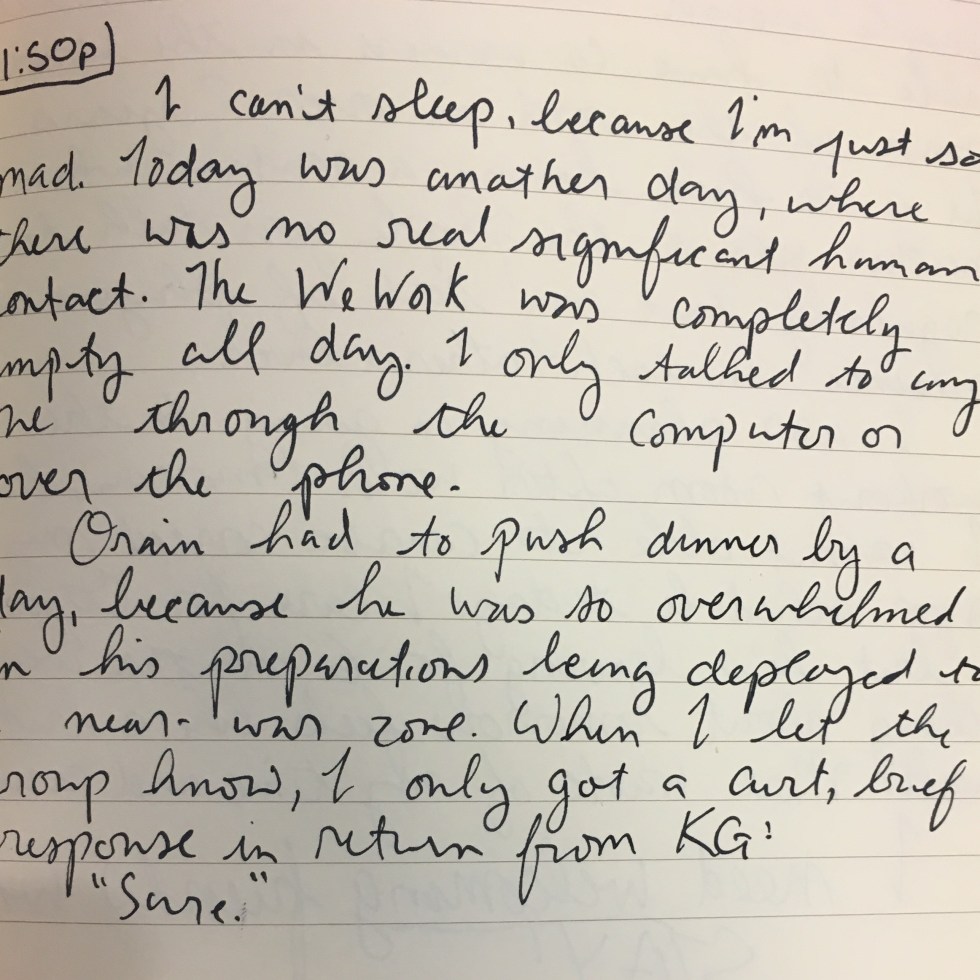 1:50p
I can't sleep, because I'm just so
mad. Today was another day, where
there was no real significant human
ontact. The WeWork was completely
mpty all day. I only talked to any
ne through the computer or
over the phone.
Orain had to push dinner by a
day, because he was so overwhelmed
in his preparations being deployed to
near-war zone. When I let the
roup know, I only got a curt, brief
response in return from KG:
"Sure."